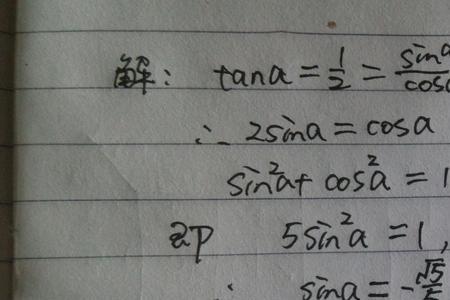 解: tana = 1/2 = sina/cos
∴ 2sina = cosa
sin²a + cos²a = 1
即 5sin²a = 1,
∴ sina = -√5/5